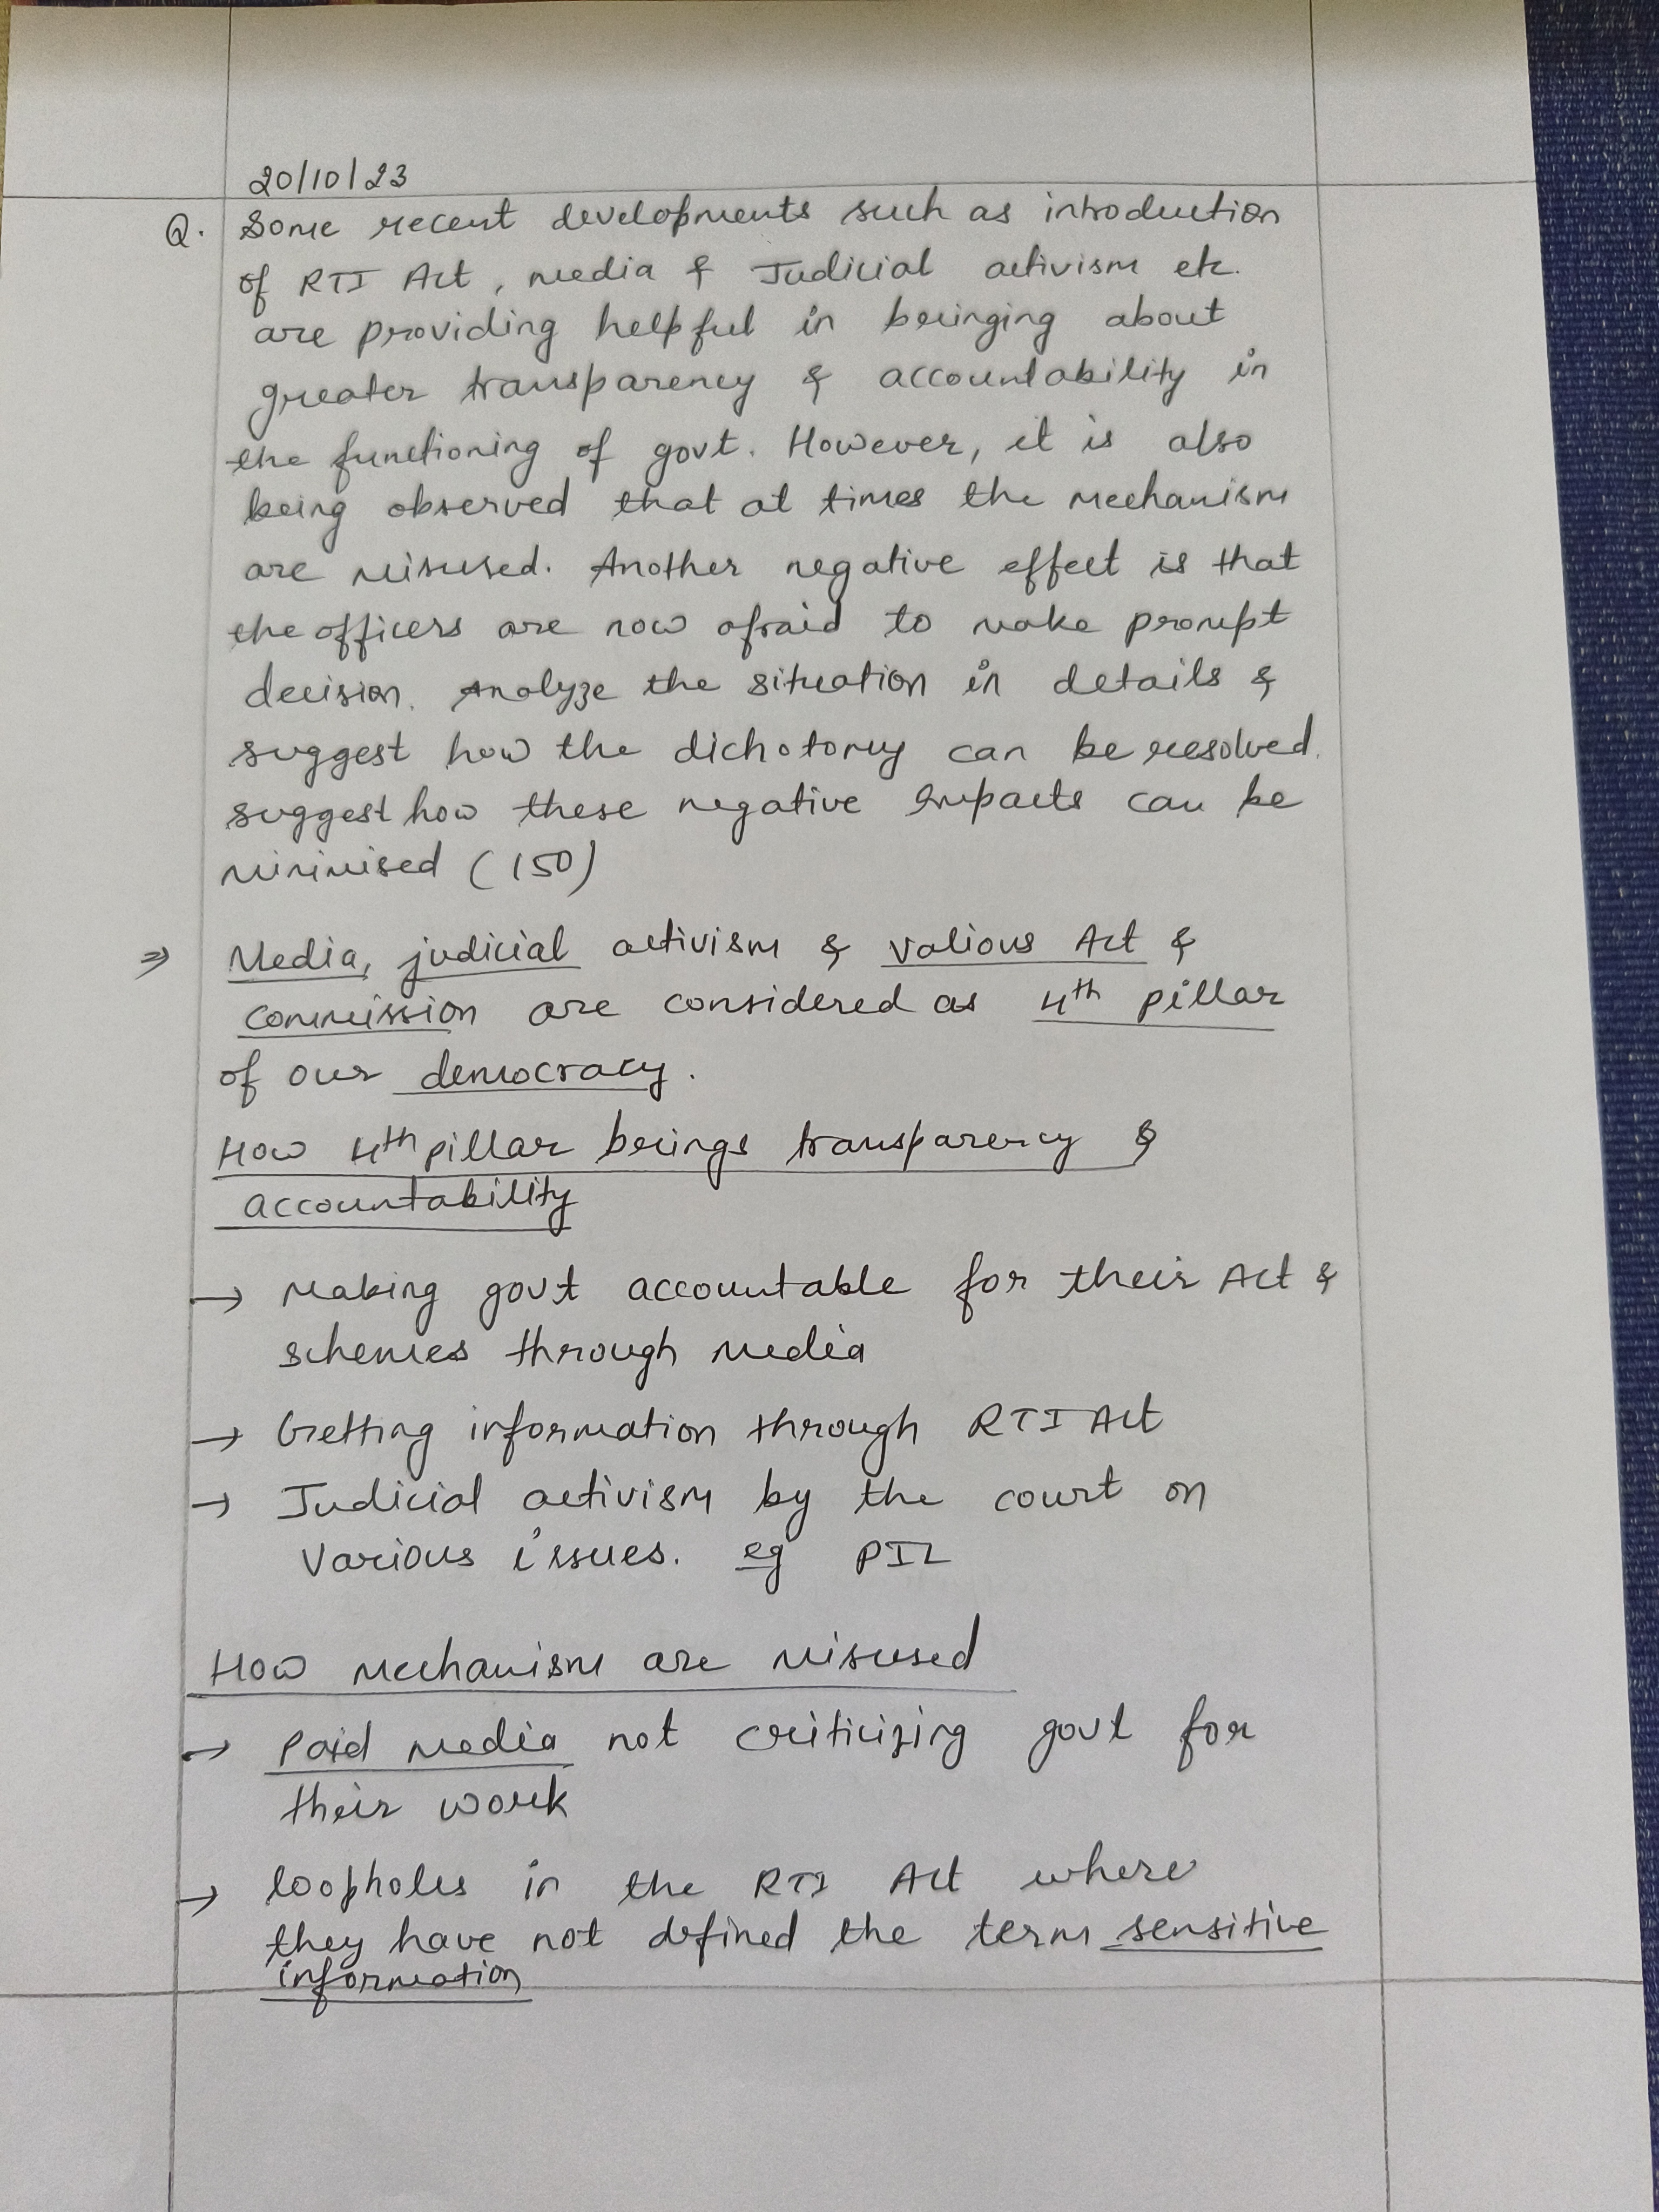 20/10/23
Q. Some recent developments such as introduction
of RTI Act, media & Judicial activism etc.
are providing helpful in bringing about
greater transparency & accountability in
the functioning of govt. However, it is also
being observed that at times the mechanism
are misused. Another negative effect is that
the officers are now afraid to make prompt
decision. Analyze the situation in details &
suggest how the dichotomy can be resolved.
suggest how these negative impacts can be
minimised (150)
⇒ Media, judicial activism & valious Act &
commission are considered as 4th pillar
of our democracy.
How 4th pillar brings transparency &
accountability
→ Making govt accountable for their Act &
schemes through media
→ Getting information through RTI Act
→ Judicial activism by the court on
various issues. eg PIL
How mechanism are misused
→ Paid media not criticizing govt for
their work
→ loopholes in the RTI Act where
they have not defined the term sensitive
information